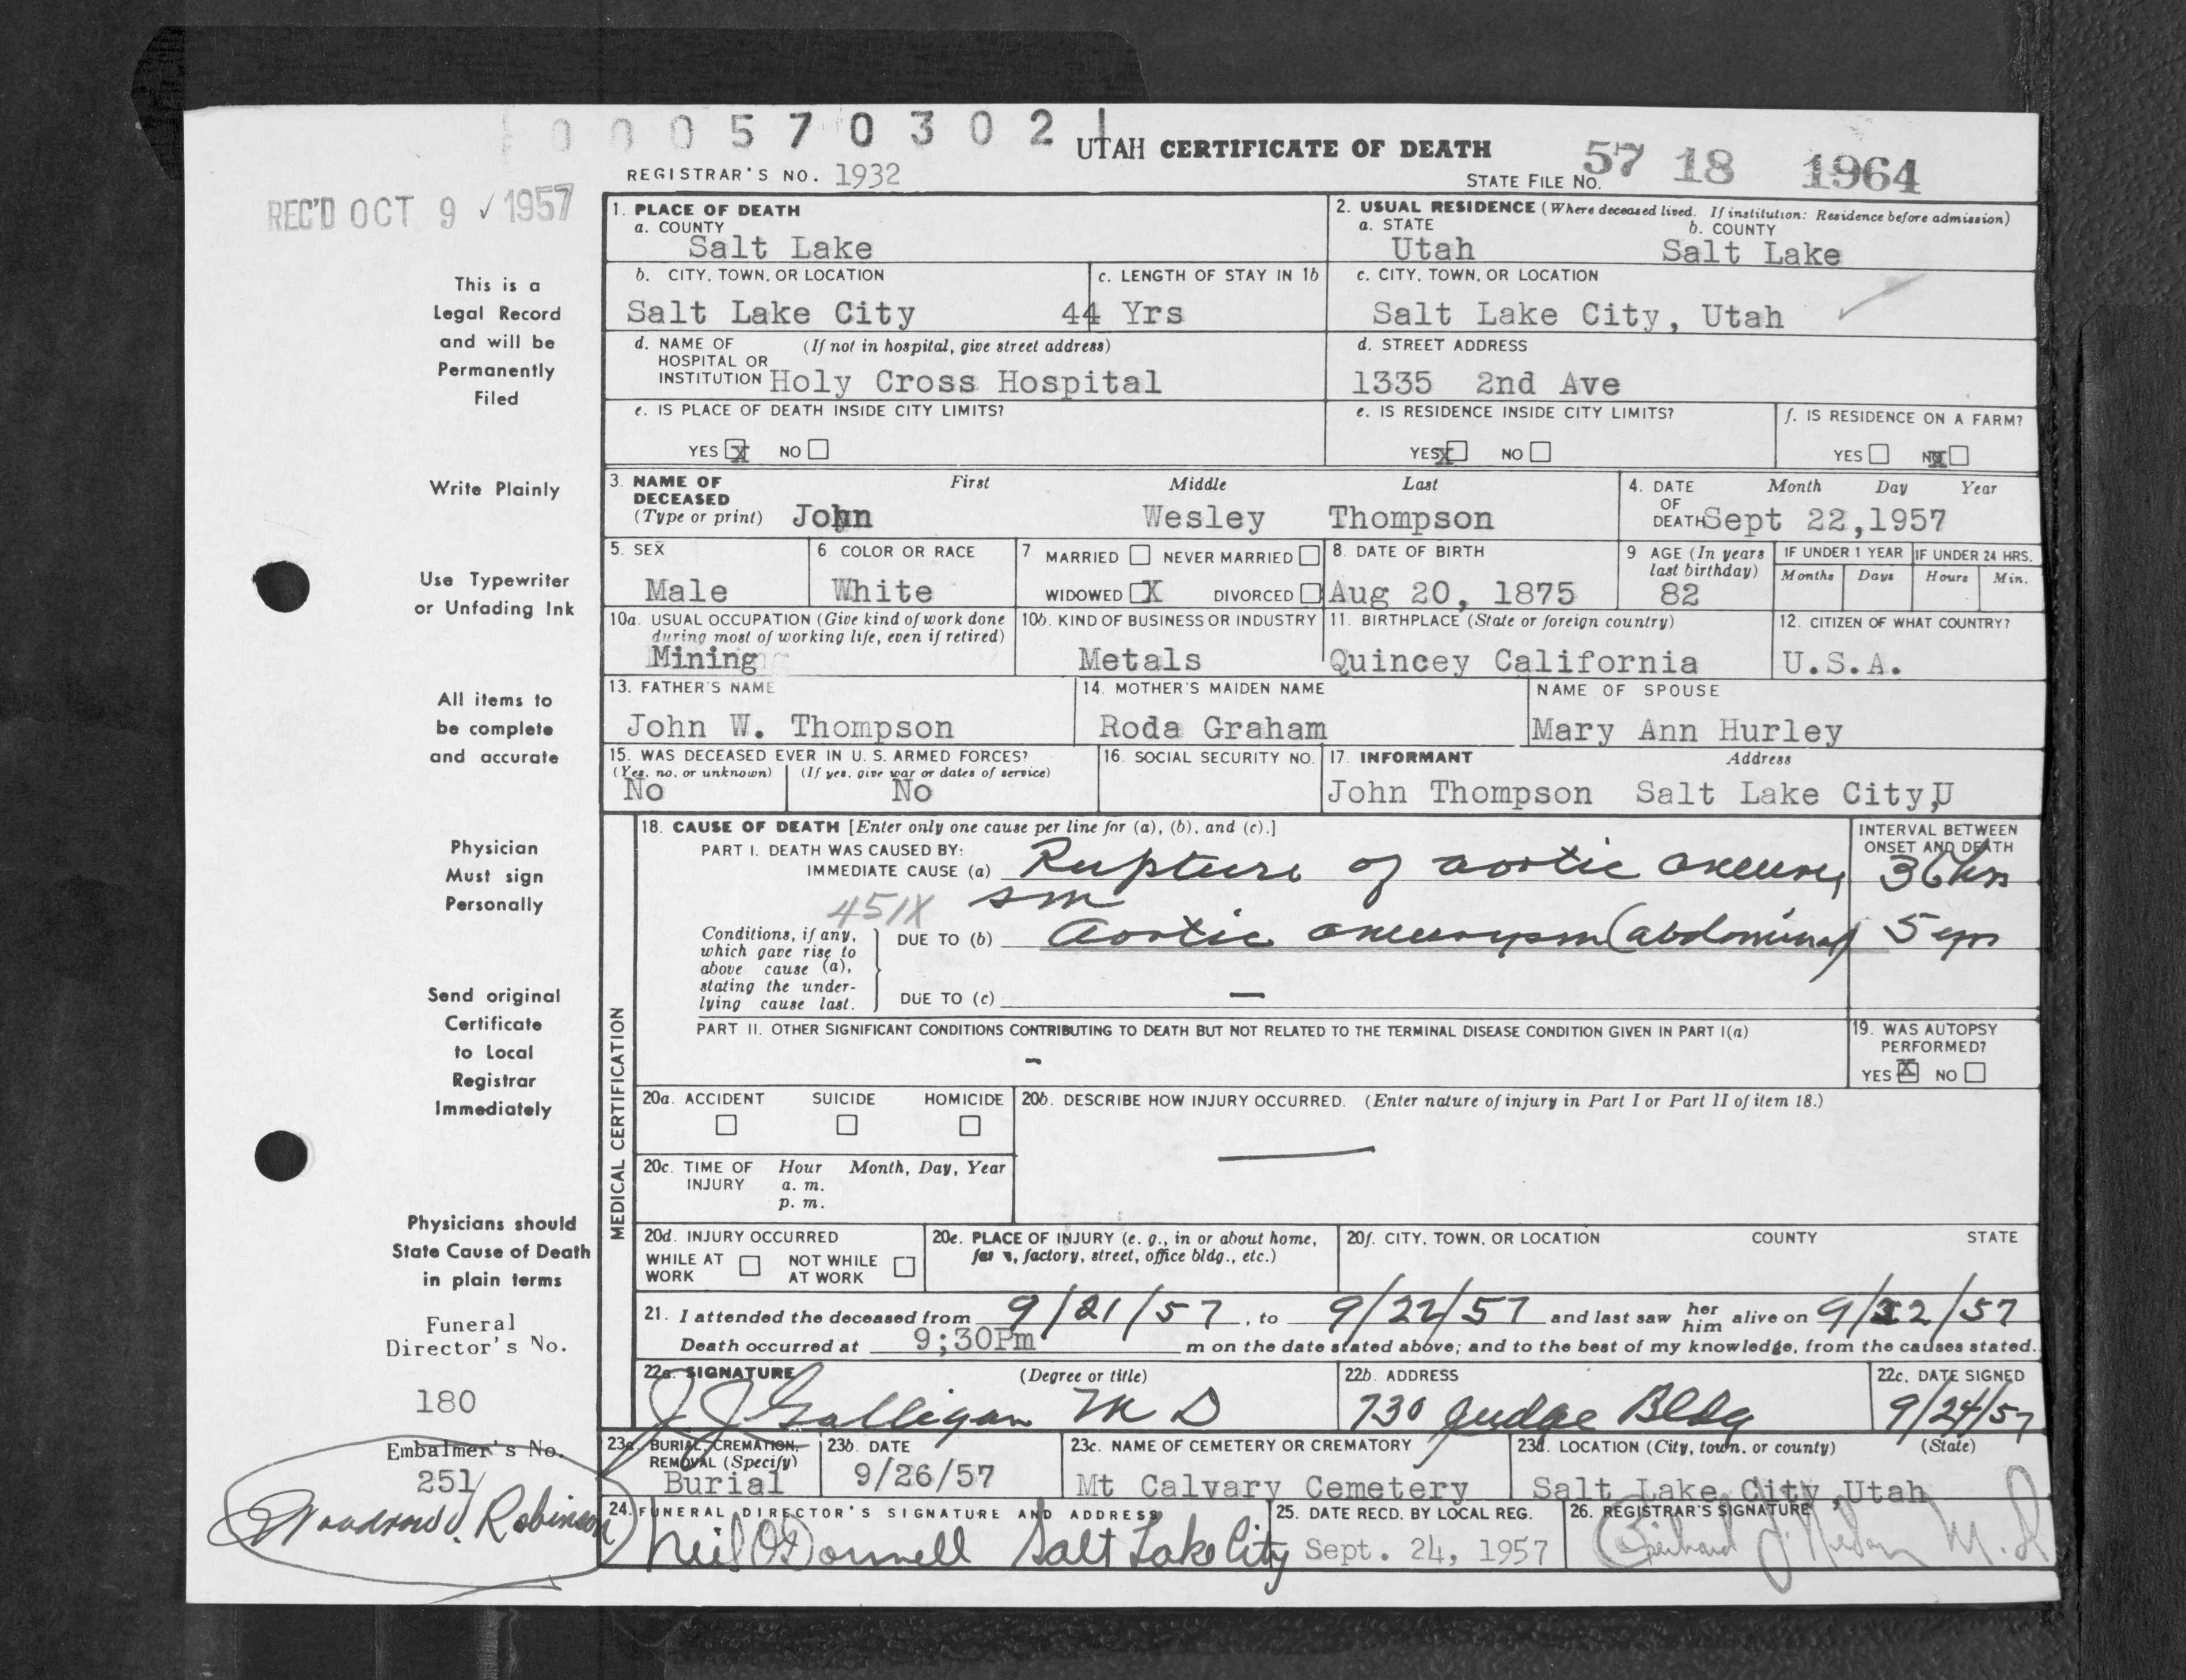 0 0 0 5 7 0 3 0 2 1
UTAH CERTIFICATE OF DEATH
REGISTRAR'S NO. 1932
STATE FILE NO. 57 18 1964
REC'D OCT 9 ✓ 1957
This is a
Legal Record
and will be
Permanently
Filed
Write Plainly
Use Typewriter
or Unfading Ink
All items to
be complete
and accurate
Physician
Must sign
Personally
Send original
Certificate
to Local
Registrar
Immediately
Physicians should
State Cause of Death
in plain terms
Funeral
Director's No.
180
Embalmer's No.
251
Woodrow J. Robinson
1. PLACE OF DEATH
a. COUNTY
Salt Lake
2. USUAL RESIDENCE (Where deceased lived. If institution: Residence before admission)
a. STATE b. COUNTY
Utah Salt Lake
b. CITY, TOWN, OR LOCATION c. LENGTH OF STAY IN 1b
Salt Lake City 44 Yrs
c. CITY, TOWN, OR LOCATION
Salt Lake City, Utah
d. NAME OF (If not in hospital, give street address)
HOSPITAL OR
INSTITUTION Holy Cross Hospital
d. STREET ADDRESS
1335 2nd Ave
e. IS PLACE OF DEATH INSIDE CITY LIMITS?
YES X NO
e. IS RESIDENCE INSIDE CITY LIMITS?
YES X NO
f. IS RESIDENCE ON A FARM?
YES NO X
3. NAME OF First Middle Last
DECEASED
(Type or print) John Wesley Thompson
4. DATE Month Day Year
OF
DEATH Sept 22,1957
5. SEX
Male
6. COLOR OR RACE
White
7 MARRIED NEVER MARRIED
WIDOWED X DIVORCED
8. DATE OF BIRTH
Aug 20, 1875
9 AGE (In years
last birthday)
82
IF UNDER 1 YEAR IF UNDER 24 HRS.
Months Days Hours Min.
10a. USUAL OCCUPATION (Give kind of work done
during most of working life, even if retired)
Mining
10b. KIND OF BUSINESS OR INDUSTRY
Metals
11. BIRTHPLACE (State or foreign country)
Quincey California
12. CITIZEN OF WHAT COUNTRY?
U.S.A.
13. FATHER'S NAME
John W. Thompson
14. MOTHER'S MAIDEN NAME
Roda Graham
NAME OF SPOUSE
Mary Ann Hurley
15. WAS DECEASED EVER IN U. S. ARMED FORCES?
(Yes, no, or unknown) (If yes, give war or dates of service)
No No
16. SOCIAL SECURITY NO.
17. INFORMANT Address
John Thompson Salt Lake City,U
MEDICAL CERTIFICATION
18. CAUSE OF DEATH [Enter only one cause per line for (a), (b), and (c).]
PART I. DEATH WAS CAUSED BY:
IMMEDIATE CAUSE (a) Rupture of aortic aneury
sm
451X
INTERVAL BETWEEN
ONSET AND DEATH
36 hrs
Conditions, if any,
which gave rise to
above cause (a),
stating the under-
lying cause last.
DUE TO (b) Aortic aneurysm (abdominal) 5 yrs
DUE TO (c) —
PART II. OTHER SIGNIFICANT CONDITIONS CONTRIBUTING TO DEATH BUT NOT RELATED TO THE TERMINAL DISEASE CONDITION GIVEN IN PART I(a)
-
19. WAS AUTOPSY
PERFORMED?
YES X NO
20a. ACCIDENT SUICIDE HOMICIDE
20b. DESCRIBE HOW INJURY OCCURRED. (Enter nature of injury in Part I or Part II of item 18.)
—
20c. TIME OF Hour Month, Day, Year
INJURY a. m.
p. m.
20d. INJURY OCCURRED
WHILE AT NOT WHILE
WORK AT WORK
20e. PLACE OF INJURY (e. g., in or about home,
farm, factory, street, office bldg., etc.)
20f. CITY, TOWN, OR LOCATION COUNTY STATE
21. I attended the deceased from 9/21/57, to 9/22/57 and last saw her him alive on 9/22/57
Death occurred at 9;30Pm m on the date stated above; and to the best of my knowledge, from the causes stated.
22a. SIGNATURE (Degree or title)
J J Galligan M D
22b. ADDRESS
730 Judge Bldg
22c. DATE SIGNED
9/24/57
23a. BURIAL, CREMATION,
REMOVAL (Specify)
Burial
23b. DATE
9/26/57
23c. NAME OF CEMETERY OR CREMATORY
Mt Calvary Cemetery
23d. LOCATION (City, town, or county) (State)
Salt Lake City,Utah
24. FUNERAL DIRECTOR'S SIGNATURE AND ADDRESS
Neil O'Donnell Salt Lake City
25. DATE RECD. BY LOCAL REG.
Sept. 24, 1957
26. REGISTRAR'S SIGNATURE
M.D.